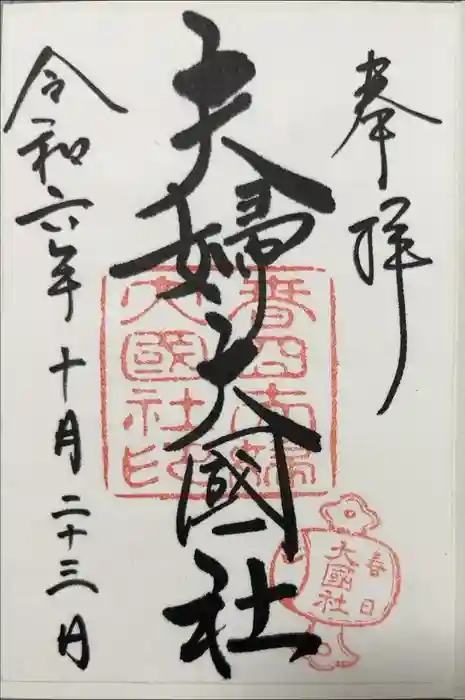 奉拝
夫婦大國社
春日夫婦
大國社印
春日
大國社
令和六年十月二十三日